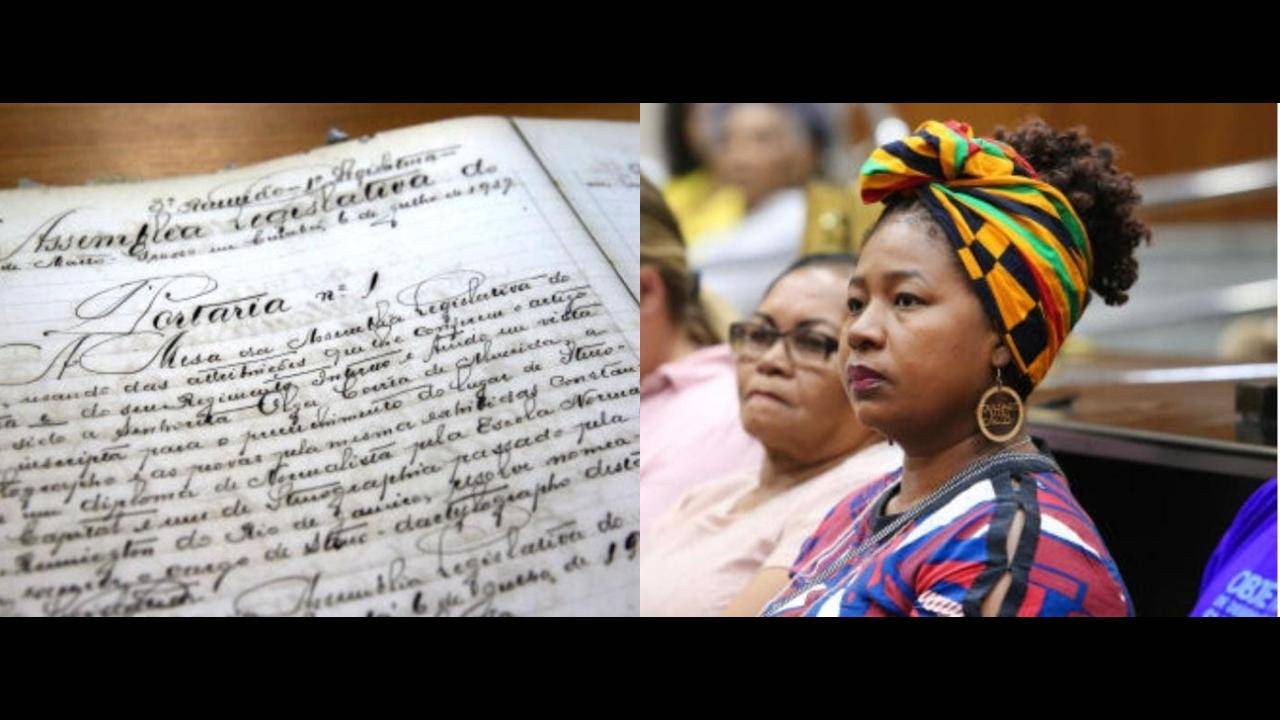 3ª Reunião — 1ª Legislatura —
Assemblea Legislativa do
de Matto Grosso em Cuiabá, 6 de Julho de 1929
Portaria nº 1
A Mesa da Assemblea Legislativa do
usando das attribuições que lhe conferem o artigo
e do seu Regimento Interno e tendo em vista
sido a Senhorita Olga Corrêa de Almeida, a
inscripta para o preenchimento do lugar de Steno-
e as provas pela mesma exhibidas constan
um diploma de Normalista pela Escola Norma
Capital e um de Stenographia passado pela
Remington do Rio de Janeiro, resolve nomea-
cargo de Steno dactylographo desta
Assemblea Legislativa do
6 de Julho de 19
OBJE